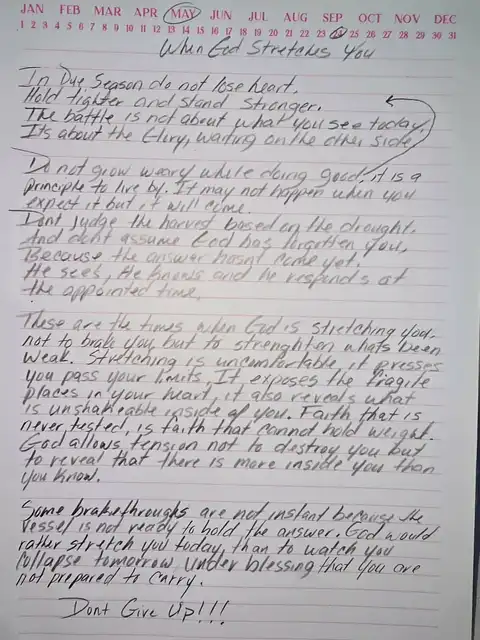 JAN FEB MAR APR MAY JUN JUL AUG SEP OCT NOV DEC
1 2 3 4 5 6 7 8 9 10 11 12 13 14 15 16 17 18 19 20 21 22 23 24 25 26 27 28 29 30 31
When God Stretches You
In Due Season do not lose heart.
Hold tighter and stand stronger.
The battle is not about what you see today.
It's about the Glory, waiting on the other side
Do not grow weary while doing good, it is a
principle to live by. It may not happen when you
expect it but it will come.
Dont judge the harvest based on the drought.
And dont assume God has forgotten you,
Because the answer hasn't come yet.
He sees, He knows and he responds at
the appointed time.
These are the times when God is stretching you.
not to brake you, but to strenghten whats been
weak. Stretching is uncomfortable, it presses
you pass your limits, It exposes the fragile
places in your heart, it also reveals what
is unshakeable inside of you. Faith that is
never tested, is faith that cannot hold weight.
God allows tension not to destroy you but
to reveal that there is more inside you than
you know.
Some brakethroughs are not instant because the
vessel is not ready to hold the answer. God would
rather stretch you today, than to watch you
collapse tomorrow under blessing that you are
not prepared to carry.
Dont Give Up!!!